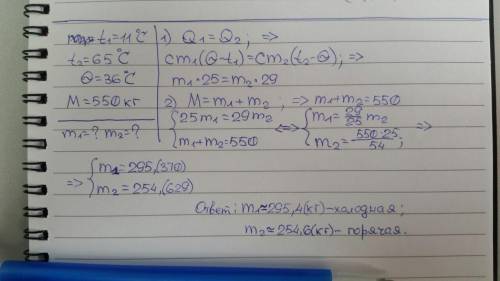 t₁=11°C
t₂=65°C
Θ=36°C
M=550 кг
m₁=? m₂=?
1) Q₁=Q₂; =>
cm₁(Θ-t₁)=cm₂(t₂-Θ); =>
m₁·25=m₂·29
2) M=m₁+m₂; => m₁+m₂=550
{25m₁=29m₂
m₁+m₂=550 <=> {m₁=29/25 m₂
m₂=550·25/54; =>
=> {m₁=295,(370)
m₂=254,(629)
Ответ: m₁≈295,4(кг)-холодная;
m₂≈254,6(кг)-горячая.